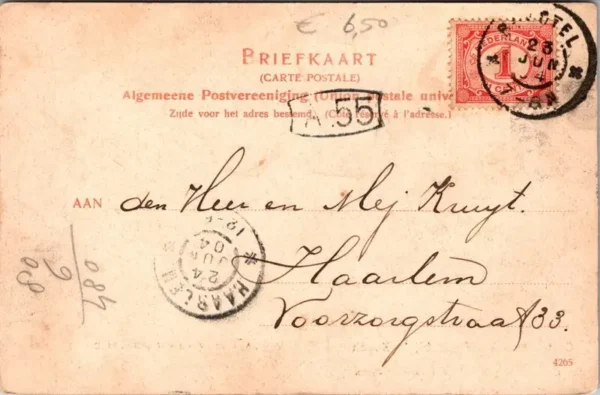 € 6,50
BRIEFKAART
(CARTE POSTALE)
Algemeene Postvereeniging (Union postale univ
Zijde voor het adres bestemd. (Coté réservé à l'adresse.)
NEDERLAND
1
CENT
23
JUN
04
A.55
AAN den Heer en Mej Kruyt.
Haarlem
Voorzorgstraat 33.
HAARLEM
24
JUN
04
084
9
08
4265